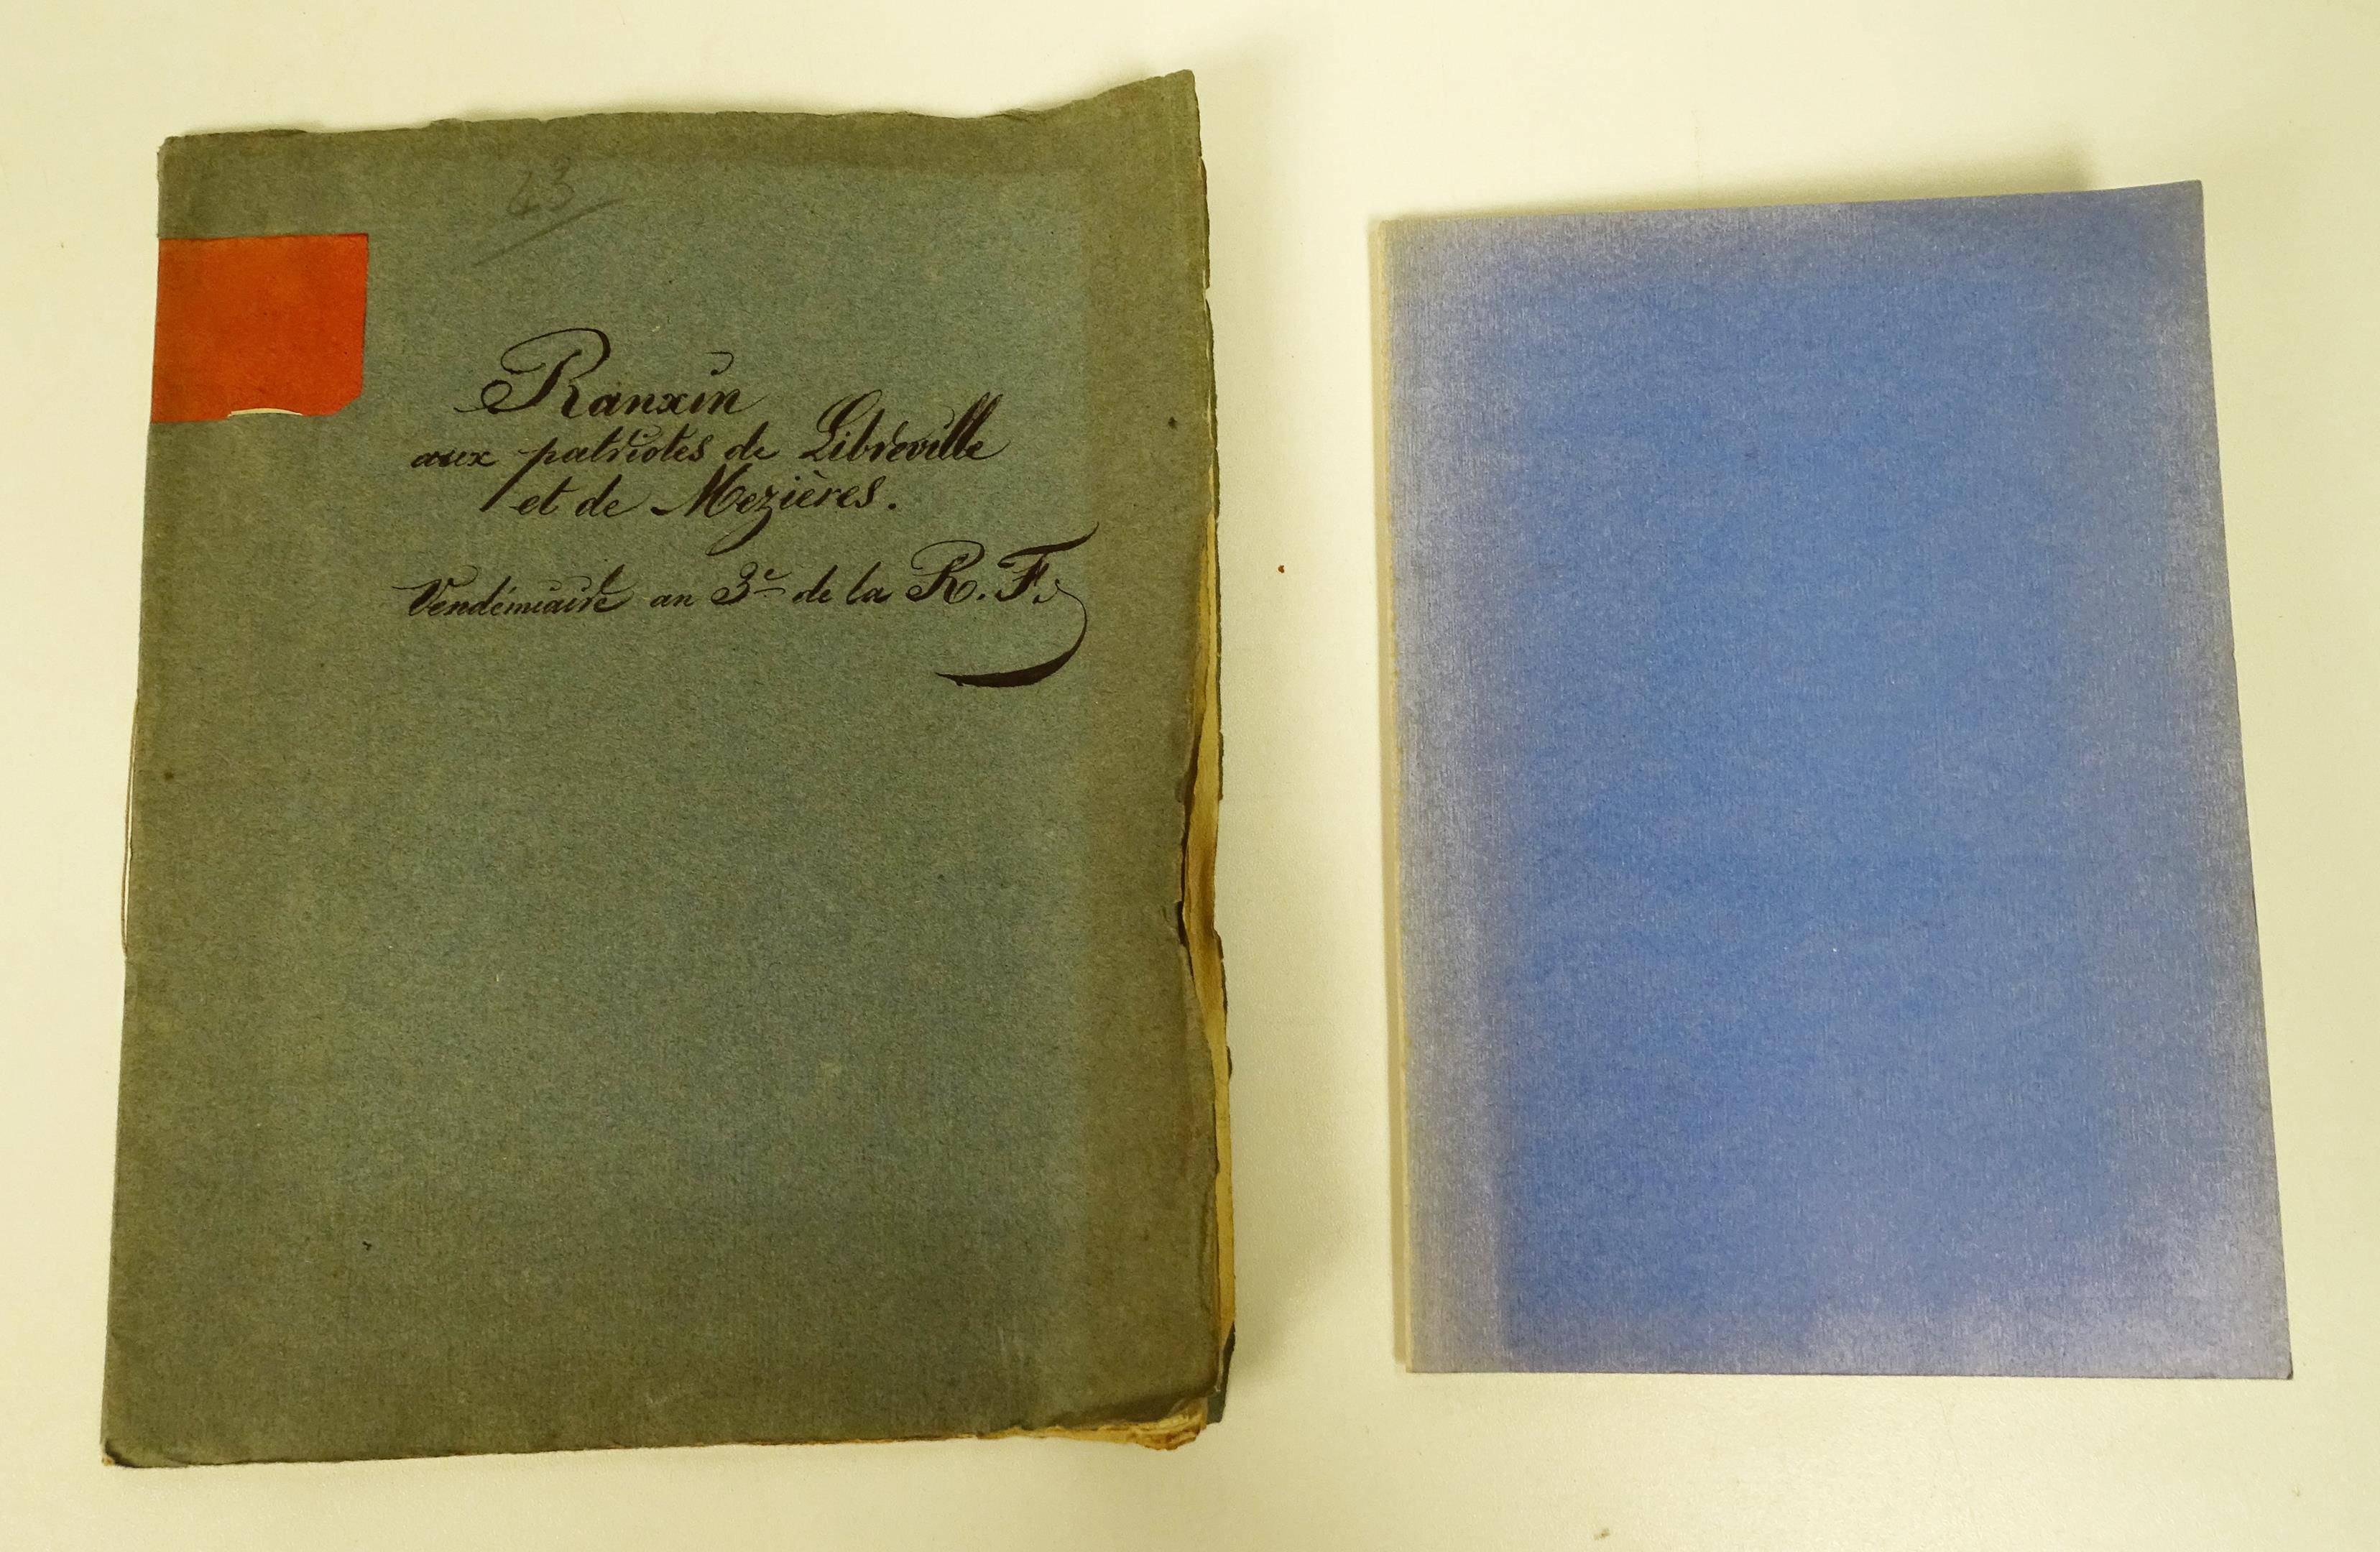 43
Ranxin
aux patriotes de Libreville
et de Mezières.
Vendémiaire an 3e de la R. F.